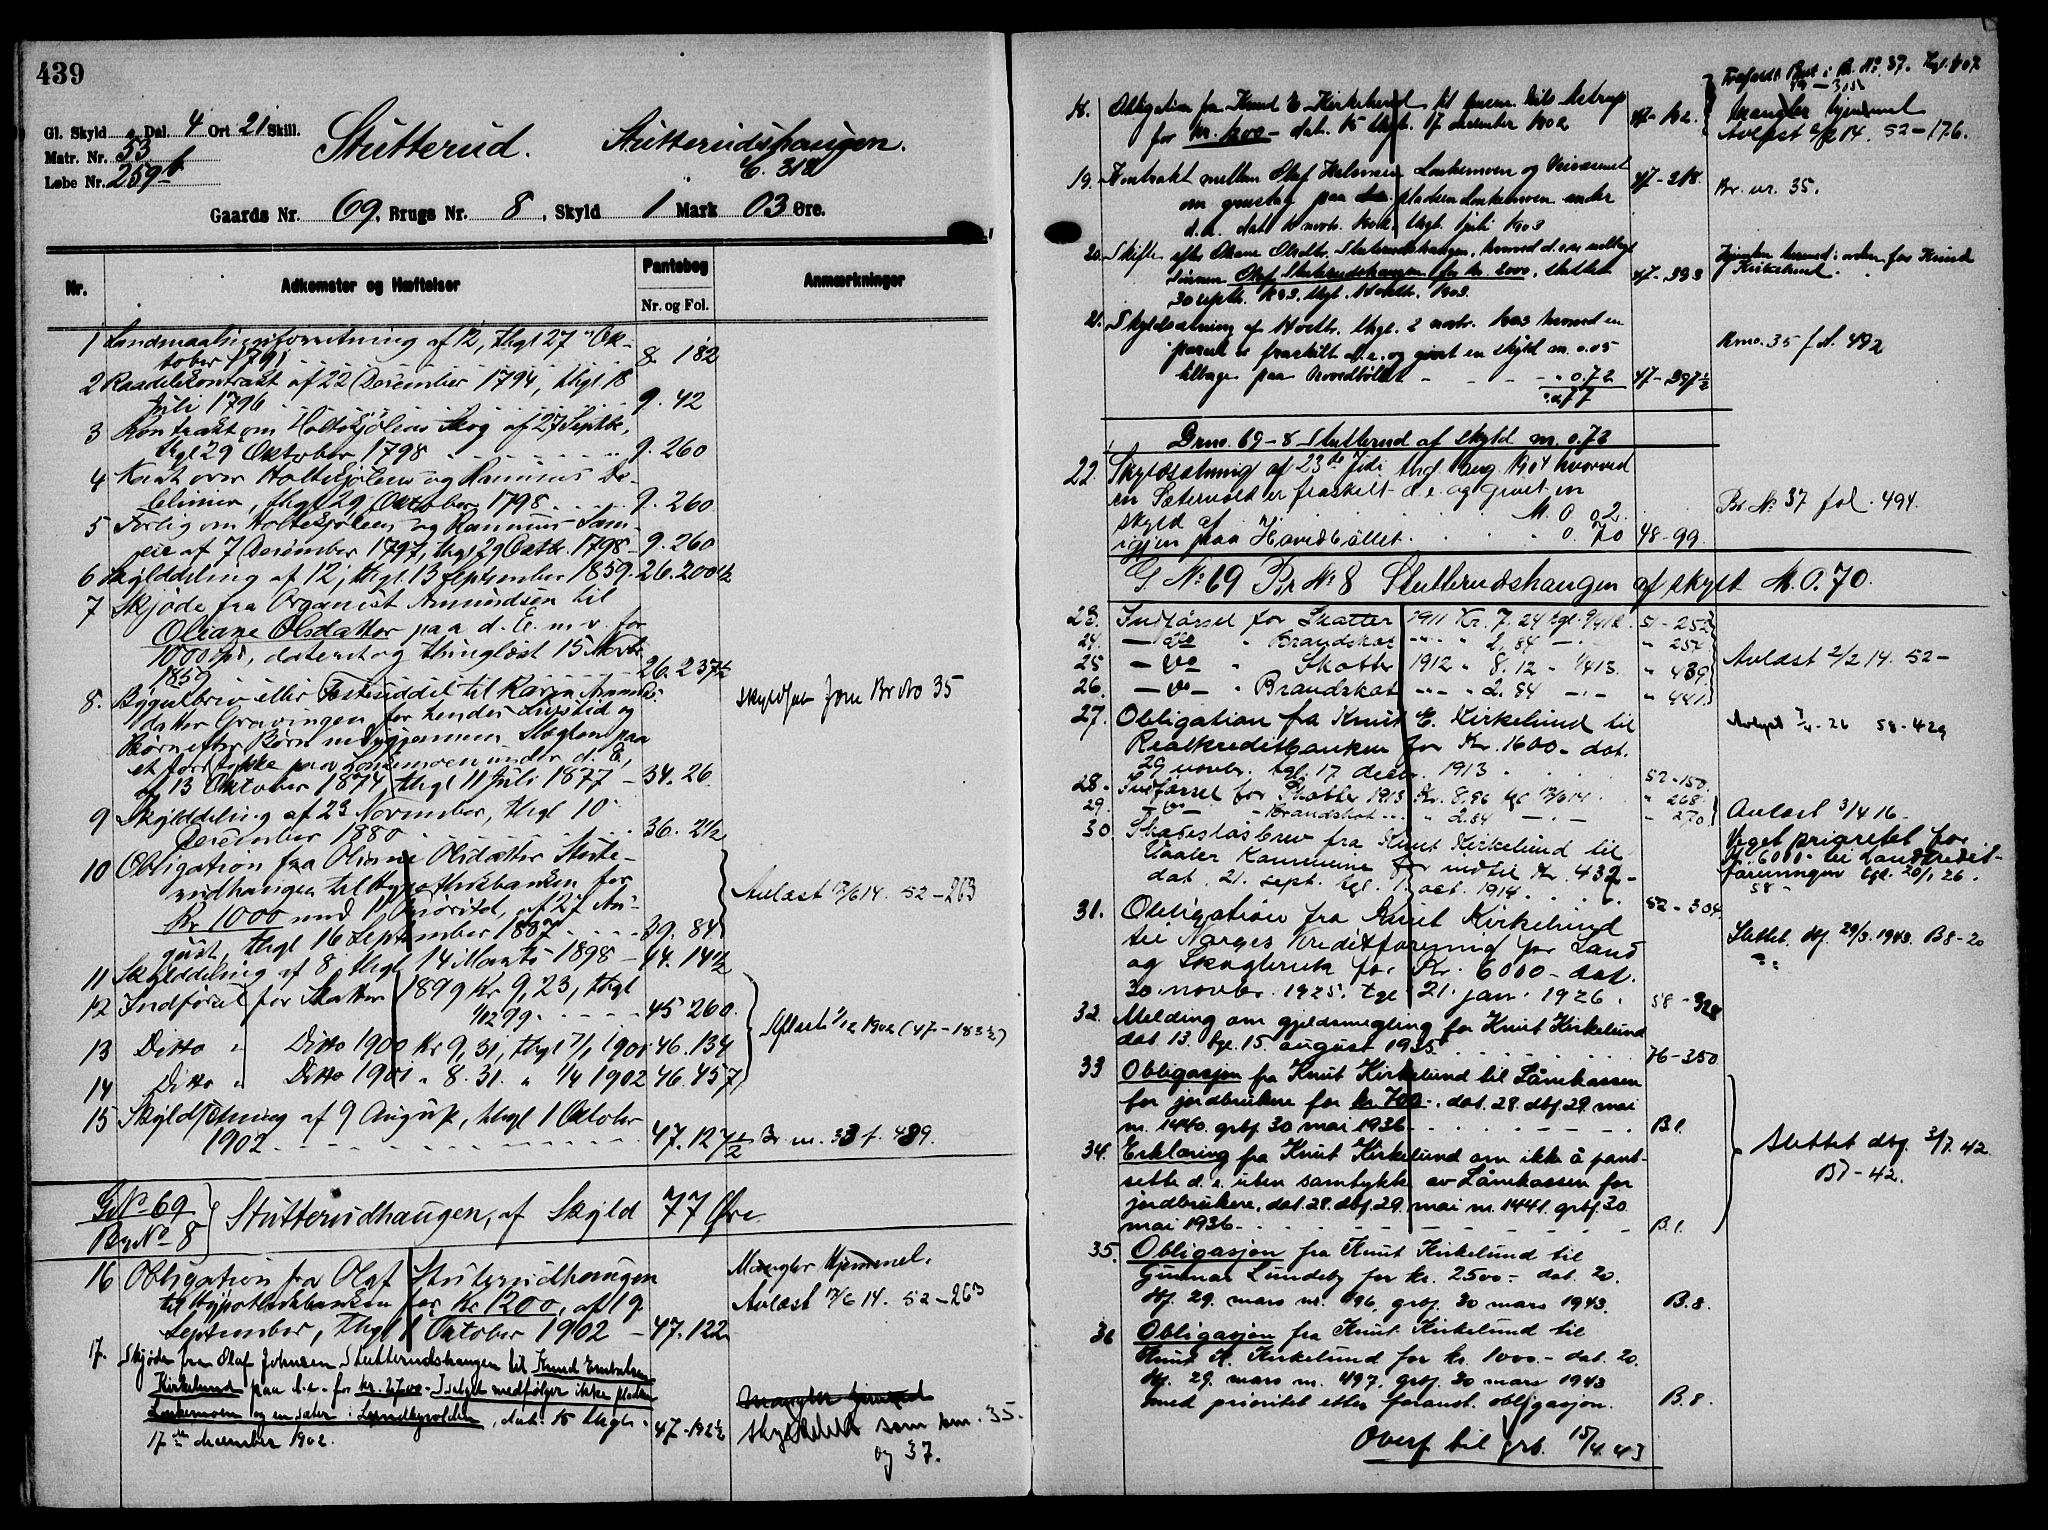 439
Gl. Skyld " Dal. 4 Ort 21 Skill.
Matr. Nr. 53
Løbe Nr. 259 b
Stutterud. Stutterudshaugen.
E. 318
Gaards Nr. 69. Brugs Nr. 8, Skyld 1 Mark 03 Øre.
Nr. Adkomster og Hæftelser Pantebog Anmærkninger
Nr. og Fol.
1 Landmaalingsforretning af 12, thgl 27 Ok-
tober 1791 8. 182
2 Raadelskontrakt af 22 December 1794, thgl 18
Juli 1796 9. 42
3 Kontrakt om Holtesjølens Skog af 27 Septbr,
thgl 29 Oktober 1798 9. 260
4 Kart over Holtesjølens og Rammus De-
thgl 29 Oktober 1798 9. 260
5 Forlig om Holtesjølens og Rammus Sam-
eie af 7 December 1797, thgl 29 Oktbr. 1798 9. 260
6 Skylddeling af 12, thgl. 13 September 1859. 26. 200 1/2
7 Skjøde fra Organist Amundsen til
Oliane Olsdatter paa d. E. m. v. for
1000 Spd, dateret og thinglæst 15 Novbr
1859 26. 237 1/2
8. Bygselbrev eller Fæstesiddel til Karen Amunds-
datter Gravingen for hendes Livstid og
Børn efter Børn nedstigende Slægten paa
et stykke paa Lonkemoen under d. E,
af 13 Oktober 1874, thgl 11 Juli 1877 - 34. 26
Br No 35
9 Skylddeling af 23 November, thgl 10
December 1880 36. 2 1/2
10 Obligation fra Oliane Olsdatter Stutte-
rudhaugen til Hypothekbanken for
Kr 1000 med 1 Prioritet, af 27 Au-
gust, thgl 16 September 1887 39. 84
Avlæst 12/6 14. 52-263
11 Skylddeling af 8 thgl 14 Marts 1898 - 44. 141 1/2
12 Indførsel for Skatter 1899 Kr 9,23, thgl
1/12 99 45 260.
13 Ditto " Ditto 1900 Kr 9,31, thgl 7/1 1901 46. 134
14 Ditto " Ditto 1901 " 8.31. " 1/4 1902 46. 457
Aflæst 1/12 1902 (47-183 1/2)
15 Skyldsetning af 9 August, thgl 1 Oktober
1902 47. 127 1/2 Br. nr. 33 f. 489.
G No 69
Br No 8 } Stutterudhaugen, af Skyld 77 Øre
16 Obligation fra Olaf Stutterudhaugen
til Hypothekbanken for Kr 1200, af 19
September, thgl 1 Oktober 1902 - 47. 122
Mangler Hjemmel.
Avlæst 12/6 14. 52-263
17. Skjøde fra Olaf Johnsen Stutterudshaugen til Knud Embretsen
Kirkelund paa d.e. for kr. 2700 - I salget medfølger ikke pladsen
Lonkemoen og en sæter i Lundbysætra, dat. 15 thgl.
17de december 1902. 47-192 1/2
Mangler hjemmel
skyldsat som brn. 35.
og 37.
18. Obligation fra Knud E Kirkelund til Nils Mitrup
for kr. 1200 - dat. 15 thgl. 17 december 1902 47-192.
Mangler hjemmel
Avlæst 2/2 14. 52-176.
19. Kontrakt mellem Olaf Halvorsen Lonkemoen og Veivæsenet
om grustag paa pladsen Lonkemoen under
d.e. dat. 10 novbr. 1902, thgl. 1 juli 1903 47-318.
Br. nr. 35.
20. Skifte efter Oliane Olsdtr. Stutterudshaugen, hvorved d.e. er udlagt
sønnen Olaf Stutterudshaugen for kr. 2000, sluttet
30 septbr. 1903, thgl. 14 oktbr. 1903. 47-393
Hjemlen hermed i orden for Knud
Kirkelund.
21. Skyldsætning af 14 octbr. thgl. 2 novbr. 1903 hvorved en
parcel er fraskilt d.e. og givet en skyld m. 0.05
tilbage paa hovedbølet - - - - " 0.72
" 0,77 47-397 1/2
Brno. 35 fol. 492
Brno. 69-8 Stutterud af skyld m. 0.72
22. Skyldsætning af 23de Juli thgl 1 aug. 1904 hvorved
en Sætervold er fraskilt d.e. og givet en
skyld af M. 0 02.
igjen paa Hovedbøllet. " 0. 70 48-99.
Br No 37 fol. 494.
G No 69 Br No 8 Stutterudshaugen af skyld M. 0.70.
23. Indførsel for Skatter 1911 Kr. 7.24 tgl. 9/4 12. 51-252
24. - do " Brandskat " " 2,84 - " - " 254
25 - do " Skatter 1912 " 8,12 " 1/4 13. " 439
26. - do - " Brandskat " " 2.84 - " - " 441
Avlæst 2/2 14. 52-
27. Obligation fra Knut E. Kirkelund til
Realkreditbanken for Kr. 1600 - dat.
29 novbr. tgl. 17 decbr. 1913 52-150.
58-429
28. Indførsel for Skatter 1913 Kr. 8,96 tgl 12/6 14 " 268
29. - do - Brandskat " " 2.84 - " - " 270
Avlæst 3/4 16-
30. Skadesløsbrev fra Knut Kirkelund til
Vaaler Kommune for indtil Kr. 432 -
dat. 21. sept. tgl. 1. oct. 1914. 52-304
Veget prioritet for
Kr. 6000 - til Landkredit-
foreningen tgl. 20/1 26.
58-
31. Obligation fra Knut Kirkelund
til Norges Kreditforening for Land
og Skogbruk for Kr. 6000 - dat.
30 novbr. 1925. tgl. 21. jan. 1926. 58-328
Slettet dbf. 29/3. 1943. B 8-20
32. Melding om gjeldsmegling for Knut Kirkelund
dat. 13. tgl. 15. august 1935. 76-350
33 Obligasjon fra Knut Kirkelund til Lånekassen
for jordbrukere for kr. 700 -. dat. 28. dbf. 29. mai
nr. 1440. grbf. 30 mai 1936 B 1.
34. Erklæring fra Knut Kirkelund om ikke å pant-
sette d.e. uten samtykke av Lånekassen for
jordbrukere, dat. 28. dbf. 29. mai nr. 1441. grbf. 30
mai 1936. B. 1.
Slettet dbf. 3/7. 42
B7-42.
35. Obligasjon fra Knut Kirkelund til
Gunnar Lundeby for kr. 2500 - dat. 20.
dbf. 29. mars nr. 496, grbf. 30 mars 1943. B. 8.
36 Obligasjon fra Knut Kirkelund til
Knut K. Kirkelund for kr. 1000. - dat. 20.
dbf. 29. mars nr. 497, grbf. 30 mars 1943
med prioritet etter foranst. obligasjon. B. 8.
Overf til grb. 15/4. 43